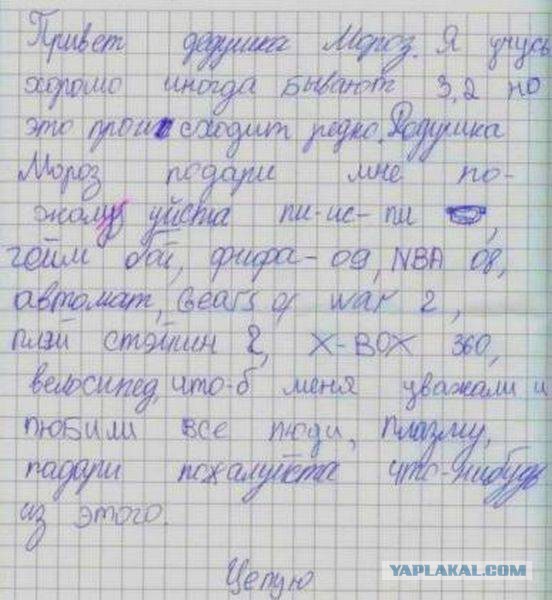 Привет дедушка Мороз. Я учусь
хорошо иногда бывают 3,2 но
это происходит редко. Дедушка
Мороз подари мне по-
жалуйста пи-ис-пи,
гейм бой, фифа-09, NBA 08,
автомат, Gears of war 2,
плэй стэйшин 2, X-BOX 360,
велосипед, что-б меня уважали и
любили все люди, плазму,
падари пожалуйста что-нибудь
из этого.
Целую
YAPLAKAL.COM